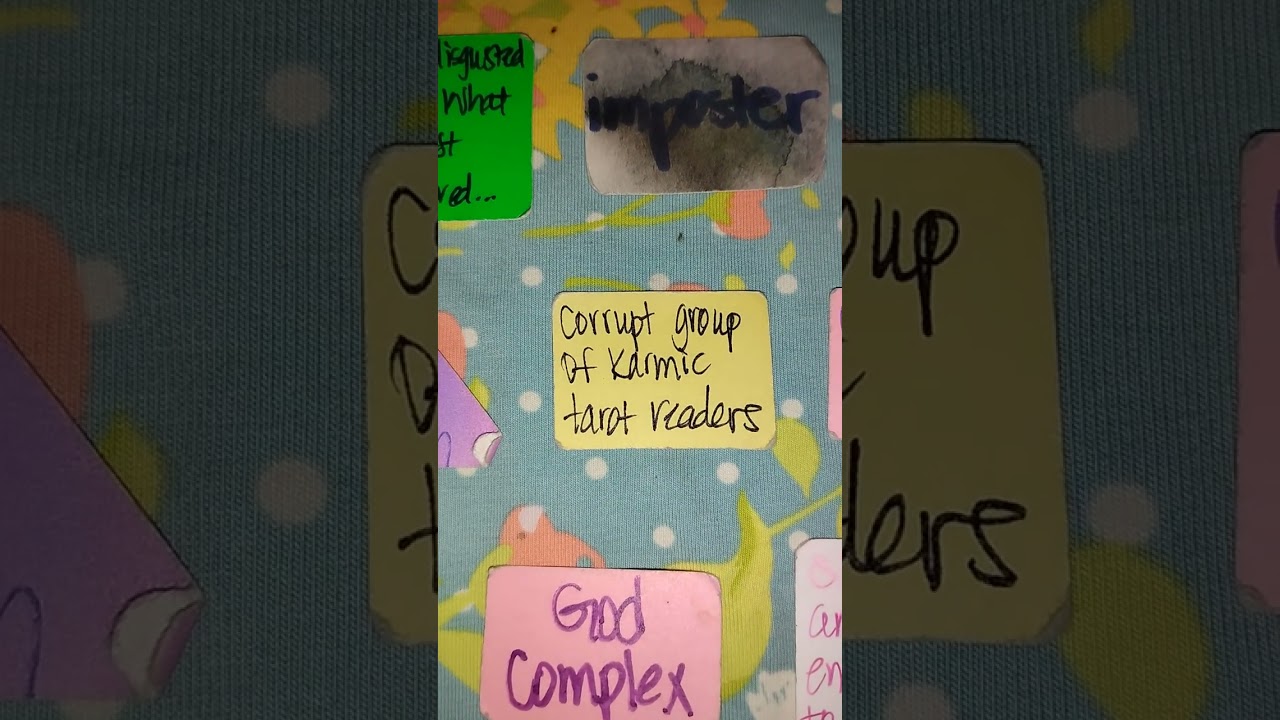 disgusted
What
imposter
Corrupt group
of Karmic
tarot readers
God
Complex